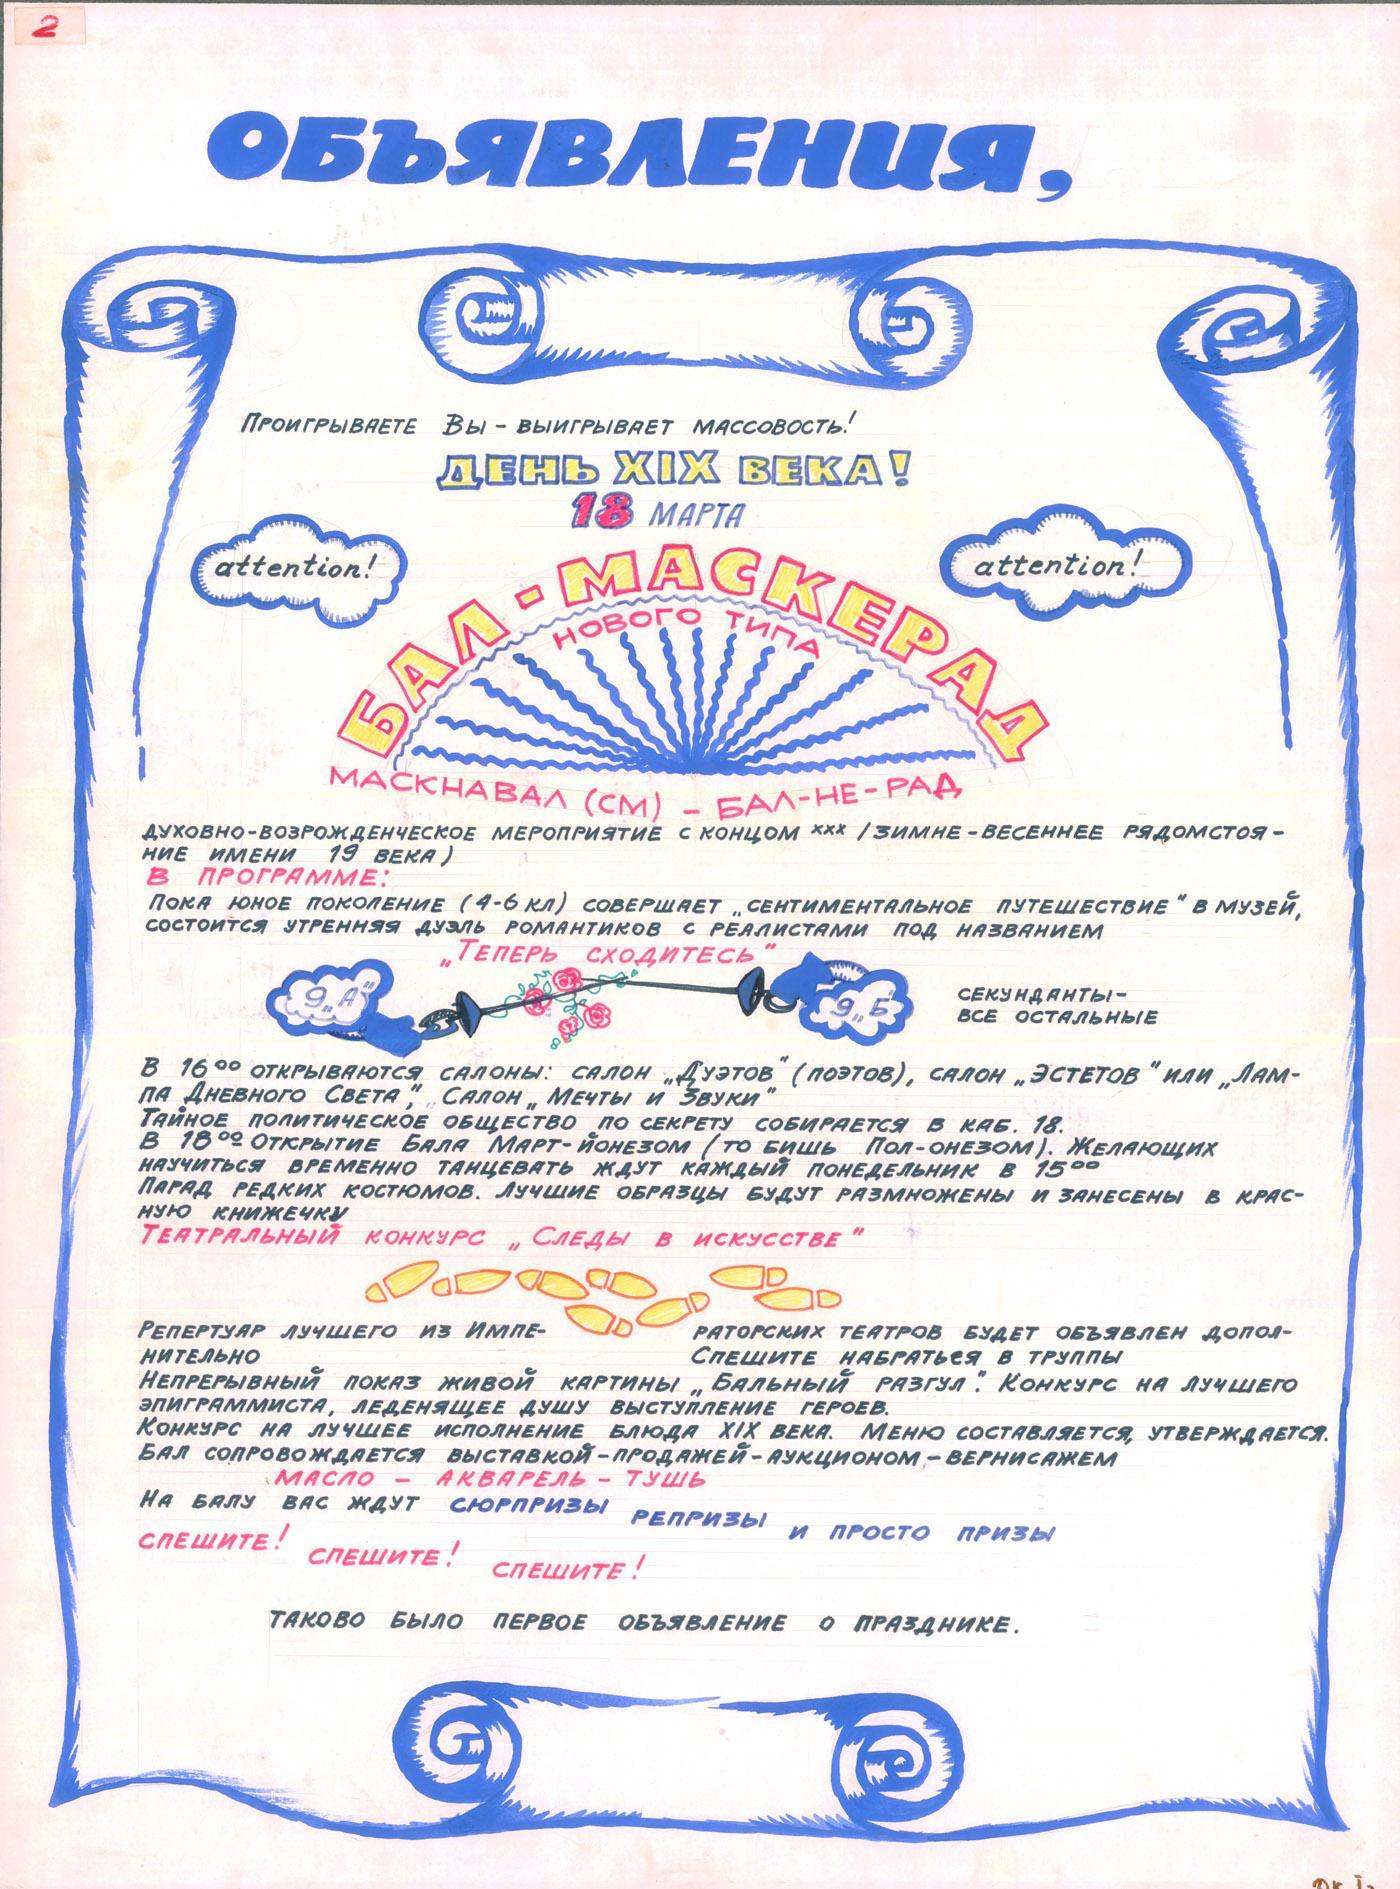 2
ОБЪЯВЛЕНИЯ,
Проигрываете Вы - выигрывает массовость!
ДЕНЬ XIX ВЕКА!
18 МАРТА
attention!
attention!
БАЛ-МАСКЕРАД
НОВОГО ТИПА
МАСКНАВАЛ (СМ) - БАЛ-НЕ-РАД
ДУХОВНО-ВОЗРОЖДЕНЧЕСКОЕ МЕРОПРИЯТИЕ С КОНЦОМ ххх /ЗИМНЕ-ВЕСЕННЕЕ РЯДОМСТОЯ-
НИЕ ИМЕНИ 19 ВЕКА)
В ПРОГРАММЕ:
ПОКА ЮНОЕ ПОКОЛЕНИЕ (4-6 КЛ) СОВЕРШАЕТ „СЕНТИМЕНТАЛЬНОЕ ПУТЕШЕСТВИЕ" В МУЗЕЙ,
СОСТОИТСЯ УТРЕННЯЯ ДУЭЛЬ РОМАНТИКОВ С РЕАЛИСТАМИ ПОД НАЗВАНИЕМ
„ТЕПЕРЬ СХОДИТЕСЬ"
9„А"
9„Б"
СЕКУНДАНТЫ-
ВСЕ ОСТАЛЬНЫЕ
В 16⁰⁰ ОТКРЫВАЮТСЯ САЛОНЫ: САЛОН „ДУЭТОВ" (ПОЭТОВ), САЛОН „ЭСТЕТОВ" ИЛИ „ЛАМ-
ПА ДНЕВНОГО СВЕТА," САЛОН „МЕЧТЫ И ЗВУКИ"
ТАЙНОЕ ПОЛИТИЧЕСКОЕ ОБЩЕСТВО ПО СЕКРЕТУ СОБИРАЕТСЯ В КАБ. 18.
В 18⁰⁰ ОТКРЫТИЕ БАЛА МАРТ-ЙОНЕЗОМ (ТО БИШЬ ПОЛ-ОНЕЗОМ). ЖЕЛАЮЩИХ
НАУЧИТЬСЯ ВРЕМЕННО ТАНЦЕВАТЬ ЖДУТ КАЖДЫЙ ПОНЕДЕЛЬНИК В 15⁰⁰
ПАРАД РЕДКИХ КОСТЮМОВ. ЛУЧШИЕ ОБРАЗЦЫ БУДУТ РАЗМНОЖЕНЫ И ЗАНЕСЕНЫ В КРАС-
НУЮ КНИЖЕЧКУ
ТЕАТРАЛЬНЫЙ КОНКУРС „СЛЕДЫ В ИСКУССТВЕ"
РЕПЕРТУАР ЛУЧШЕГО ИЗ ИМПЕ- РАТОРСКИХ ТЕАТРОВ БУДЕТ ОБЪЯВЛЕН ДОПОЛ-
НИТЕЛЬНО СПЕШИТЕ НАБРАТЬСЯ В ТРУППЫ
НЕПРЕРЫВНЫЙ ПОКАЗ ЖИВОЙ КАРТИНЫ „БАЛЬНЫЙ РАЗГУЛ". КОНКУРС НА ЛУЧШЕГО
ЭПИГРАММИСТА, ЛЕДЕНЯЩЕЕ ДУШУ ВЫСТУПЛЕНИЕ ГЕРОЕВ.
КОНКУРС НА ЛУЧШЕЕ ИСПОЛНЕНИЕ БЛЮДА XIX ВЕКА. МЕНЮ СОСТАВЛЯЕТСЯ, УТВЕРЖДАЕТСЯ.
БАЛ СОПРОВОЖДАЕТСЯ ВЫСТАВКОЙ-ПРОДАЖЕЙ-АУКЦИОНОМ-ВЕРНИСАЖЕМ
МАСЛО - АКВАРЕЛЬ - ТУШЬ
НА БАЛУ ВАС ЖДУТ СЮРПРИЗЫ РЕПРИЗЫ И ПРОСТО ПРИЗЫ
СПЕШИТЕ! СПЕШИТЕ! СПЕШИТЕ!
ТАКОВО БЫЛО ПЕРВОЕ ОБЪЯВЛЕНИЕ О ПРАЗДНИКЕ.